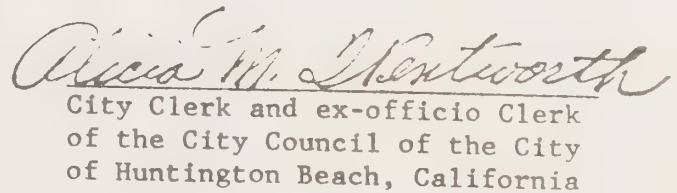 Alicia M. Wentworth
City Clerk and ex-officio Clerk
of the City Council of the City
of Huntington Beach, California